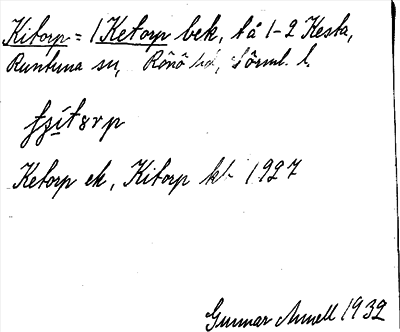 Kitorp = 1 Ketorp bek, t å 1-2 Kesta,
Runtuna sn, Rönö hd, Sörml. l.
Ketorp ek, Kitorp kt 1927
Gunnar Annell 1932